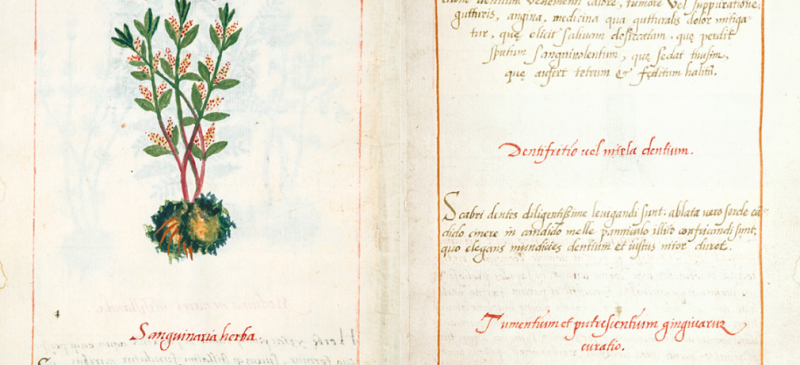 Sanguinaria herba
dentium vehementi calore, tumore vel suppuratione,
gutturis, angina, medicina qua gutturalis dolor mitiga
tur, quę elicit salivam, quę perdit
sputum sanguinolentum, quę sedat tussim,
quę aufert tetrum & halitū.
Dentifricio vel dentium.
Scabri dentes diligentissime levigandi sunt: ablata vero sorde can
dido cinere in candido melle panniculo illito confricandi sunt,
quo elegans mundities dentium et iustus nitor duret.
Tumentium et putrescentium gingivarum
curatio.